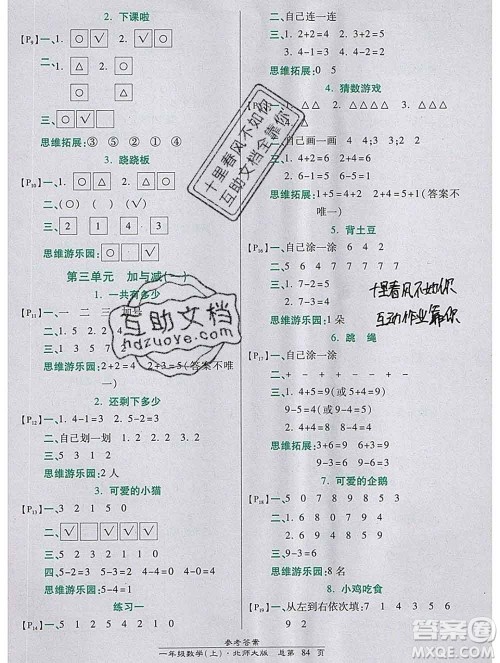 2. 下课啦
[P₉] 一、1. ○ √ 2. √ ○
二、 □ ○
□ ○ □
三、○ □ √
思维拓展:③ ⑤ ② ① ④
3. 跷跷板
[P₁₀]
二、○ √
三、 2 1 4 3
思维游乐园:□ ○ √
第三单元 加与减(一)
1. 一共有多少
[P₁₁] 一、一 二 三 加号
二、1. 5 2 2
三、
思维游乐园:2+2=4 2+3=5(答案不唯一)
2. 还剩下多少
[P₁₂] 一、1. 4-1=3 2. 5-2=3
二、自己划一划 1 2 0 2 1
三、4-2=2
思维游乐园:2 人
3. 可爱的小猫
[P₁₃] 一、3 2 1 5 0
二、√ □ √ √ √
三、5 1 3 1 1 5 0 4
四、5-2=3 5-3=2 4-0=4
思维游乐园:5-4=1
练习一
[P₁₄] 一、1. 2 3 4 5 4 3 2 1
二、自己连一连
三、1. 2+2=4 2. 3+2=5
3. 4-2=2
思维拓展:0 5
4. 猜数游戏
[P₁₅] 一、1. △△ 2. △△△ 3. △△
4. △
二、自己画一画 4 2 4 3 5
三、3 1 2 4 2 3 1
思维拓展:1+5=4+2=5+1(答案不唯一)
5. 背土豆
[P₁₆] 一、自己涂一涂
二、自己涂一涂 1
思维游乐园:1 朵
6. 跳 绳
[P₁₇] 一、自己涂一涂
二、+ - + - + -
三、1. 4+5=9(或 5+4=9)
9-4=5(或 9-5=4)
思维拓展:3+6=9 6+3=9
9-3=6 9-6=3
7. 可爱的企鹅
[P₁₈] 一、5 0 7 8 9 7 8 9
二、6 4 7 9 4 4
三、1. 3+4=7 2. 9-6=3
思维游乐园:8 名
8. 小鸡吃食
[P₁₉] 一、从左到右依次填:
1 5 2 8 3 7 4 6 5 5
十里春风不如你
互助文档全靠你
互助文档
hdzuoye.com
十里春风不如你
互助作业靠你
参考答案
一年级数学(上)·北师大版 总第 84 页
答案圈
MXQE.COM